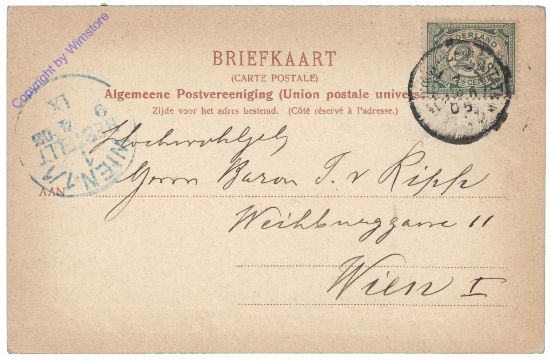 Copyright by Wimstore
NEDERLAND
BRIEFKAART
(CARTE POSTALE)
Algemeene Postvereeniging (Union postale univers
Zijde voor het adres bestemd. (Côté réservé à l'adresse.)
WIEN 1/1
1
BESTELLT
9
4
IX
Hochwohlgeb
AAN Herrn Baron T. v. Ripp
Weihburggasse 11
Wien I